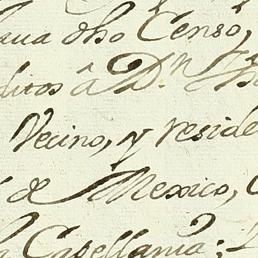 dho Censo,
ditos â D.n
Vecino, y reside
de Mexico,
Capellania;